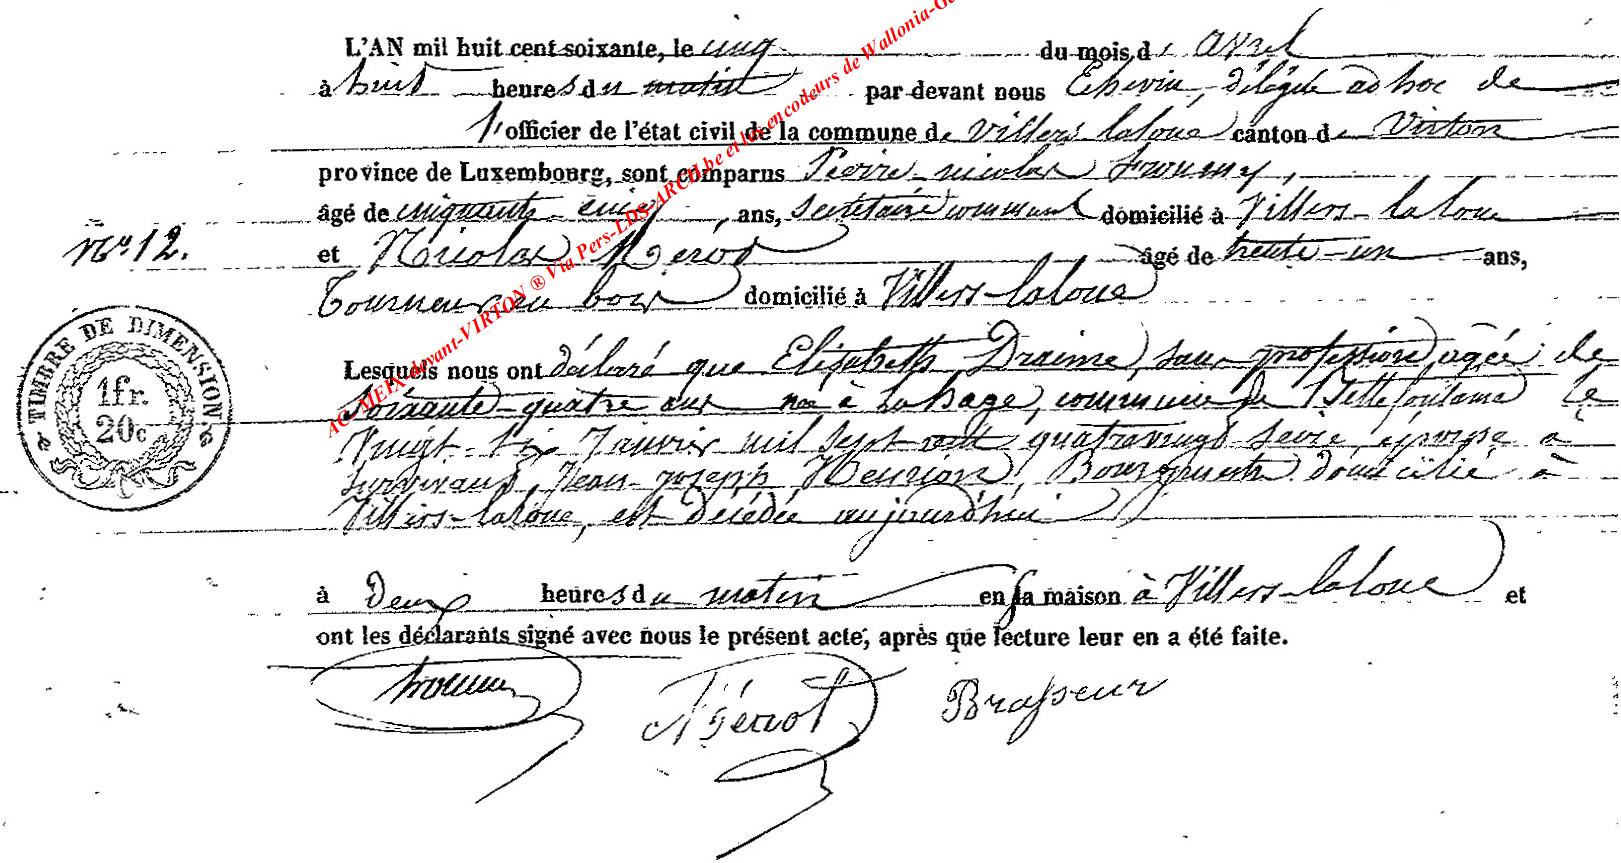 L'AN mil huit cent soixante, le cinq du mois d' avril
à huit heures du matin par devant nous Echevin, délégué ad hoc de
l'officier de l'état civil de la commune de Villers laloue canton de Virton
province de Luxembourg, sont comparus Pierre nicolas
âgé de cinquante-cinq ans, Secrétaire communal domicilié à Villers-laloue
N° 12.
et Nicolas âgé de trente-un ans,
Tourneur en bois domicilié à Villers-laloue
Lesquels nous ont déclaré que Elisabeth Draime, sans profession, agée de
Soixante-quatre ans née à Lahage, commune de Bellefontaine le
Vingt-six Janvier mil sept cent quatrevingt seize, épouse à
survivant Jean-joseph Henrion, Bourgmestre domicilié à
Villers-laloue, est décédée aujourd'hui
à deux heures du matin en sa maison à Villers-laloue et
ont les déclarants signé avec nous le présent acte, après que lecture leur en a été faite.
Brasseur
TIMBRE DE DIMENSION.
1fr.
20c
AC-MEIX-devant-VIRTON ® Via Pers-LDS-ARCH.be et les encodeurs de Wallonia-